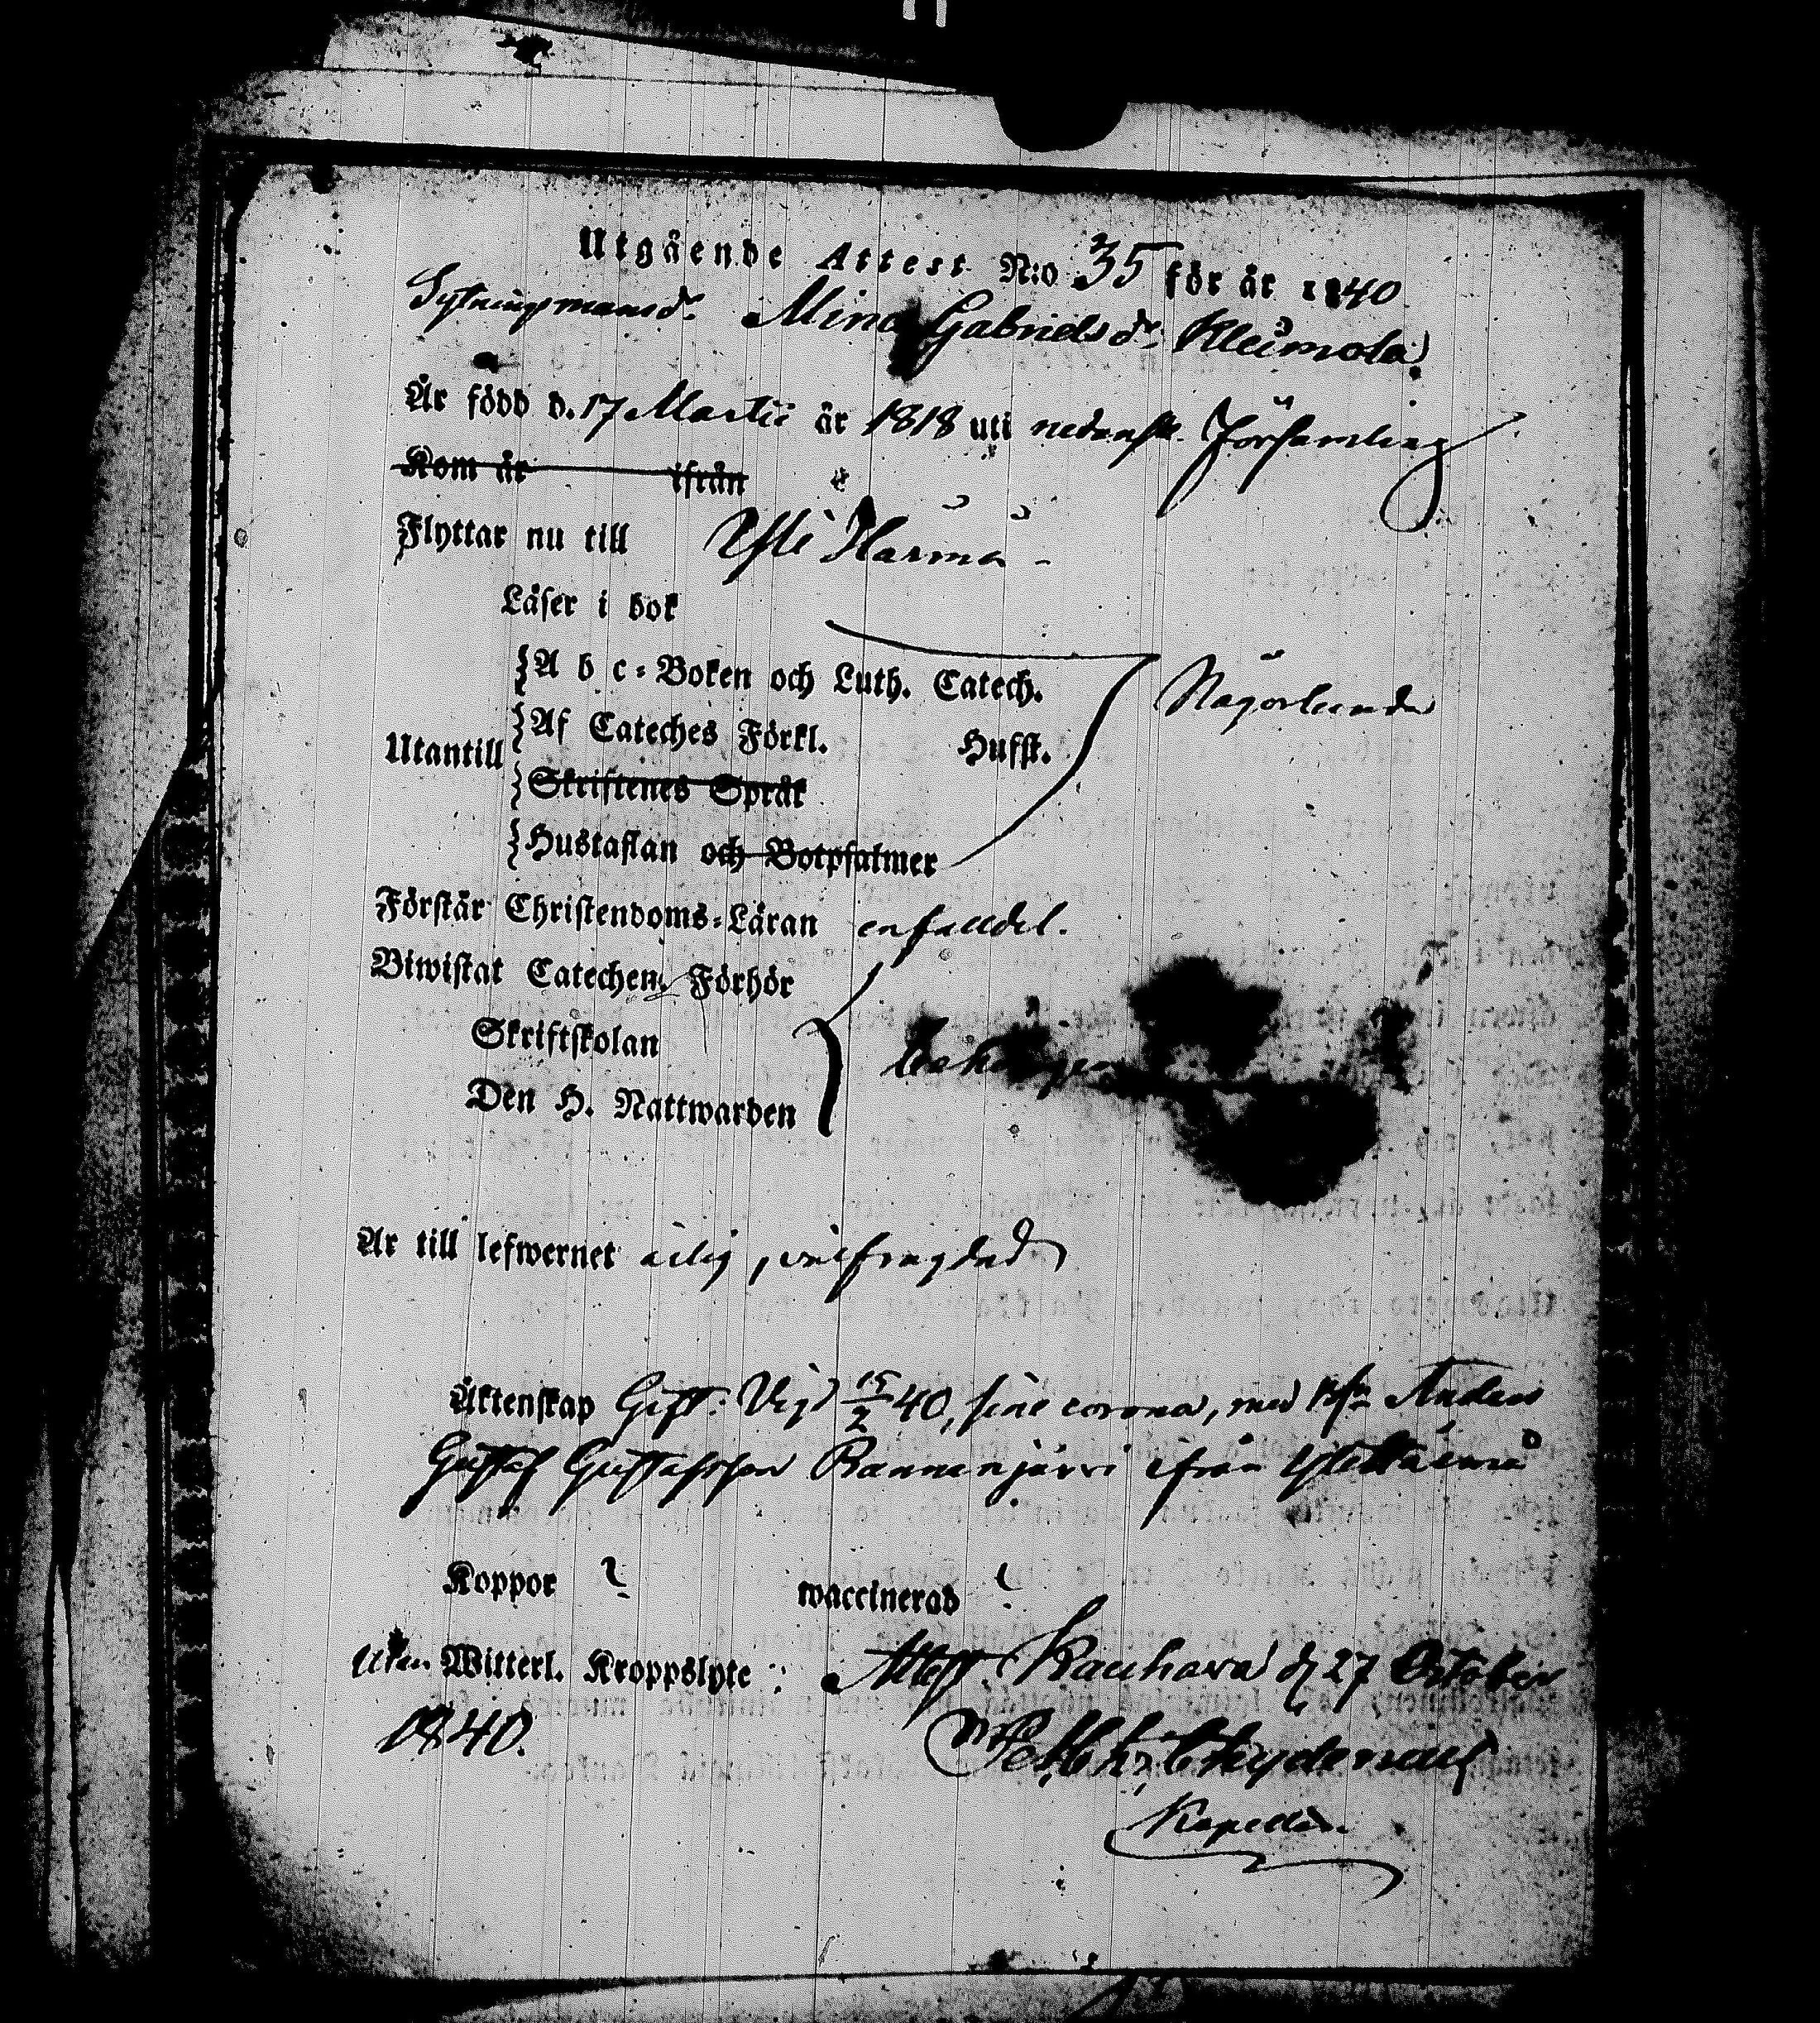 Utgående Attest N:o 35 för år 1840
Sytningsmansd. Mina Gabrielsdr. Kleimola
Är född d. 17 Martii år 1818 uti nedanst. Församling
Kom år ifrån
Flyttar nu till Yli Härmä -
Läser i bok
{A b c-Boken och Luth. Catech.
Någorlunda
{Af Cateches Förkl. Husfl.
Utantill
{Skriftenes Språk
{Hustaflan och Botpsalmer
Förstår Christendoms-Läran enfalldel.
Biwistat Catechem. Förhör
Skriftskolan
Den H. Nattwarden
Är till lefwernet ärlig, välfrägdad
Äktenskap Gift: Vigd 15/2 40, sine corona, med Anders
Gustaf Gustafsson Rannanjärvi ifrån
Koppor ? waccinerad ?
Utan Witterl. Kroppslyte: Attest. Kauhava d 27 October
1840.
Kapellan.